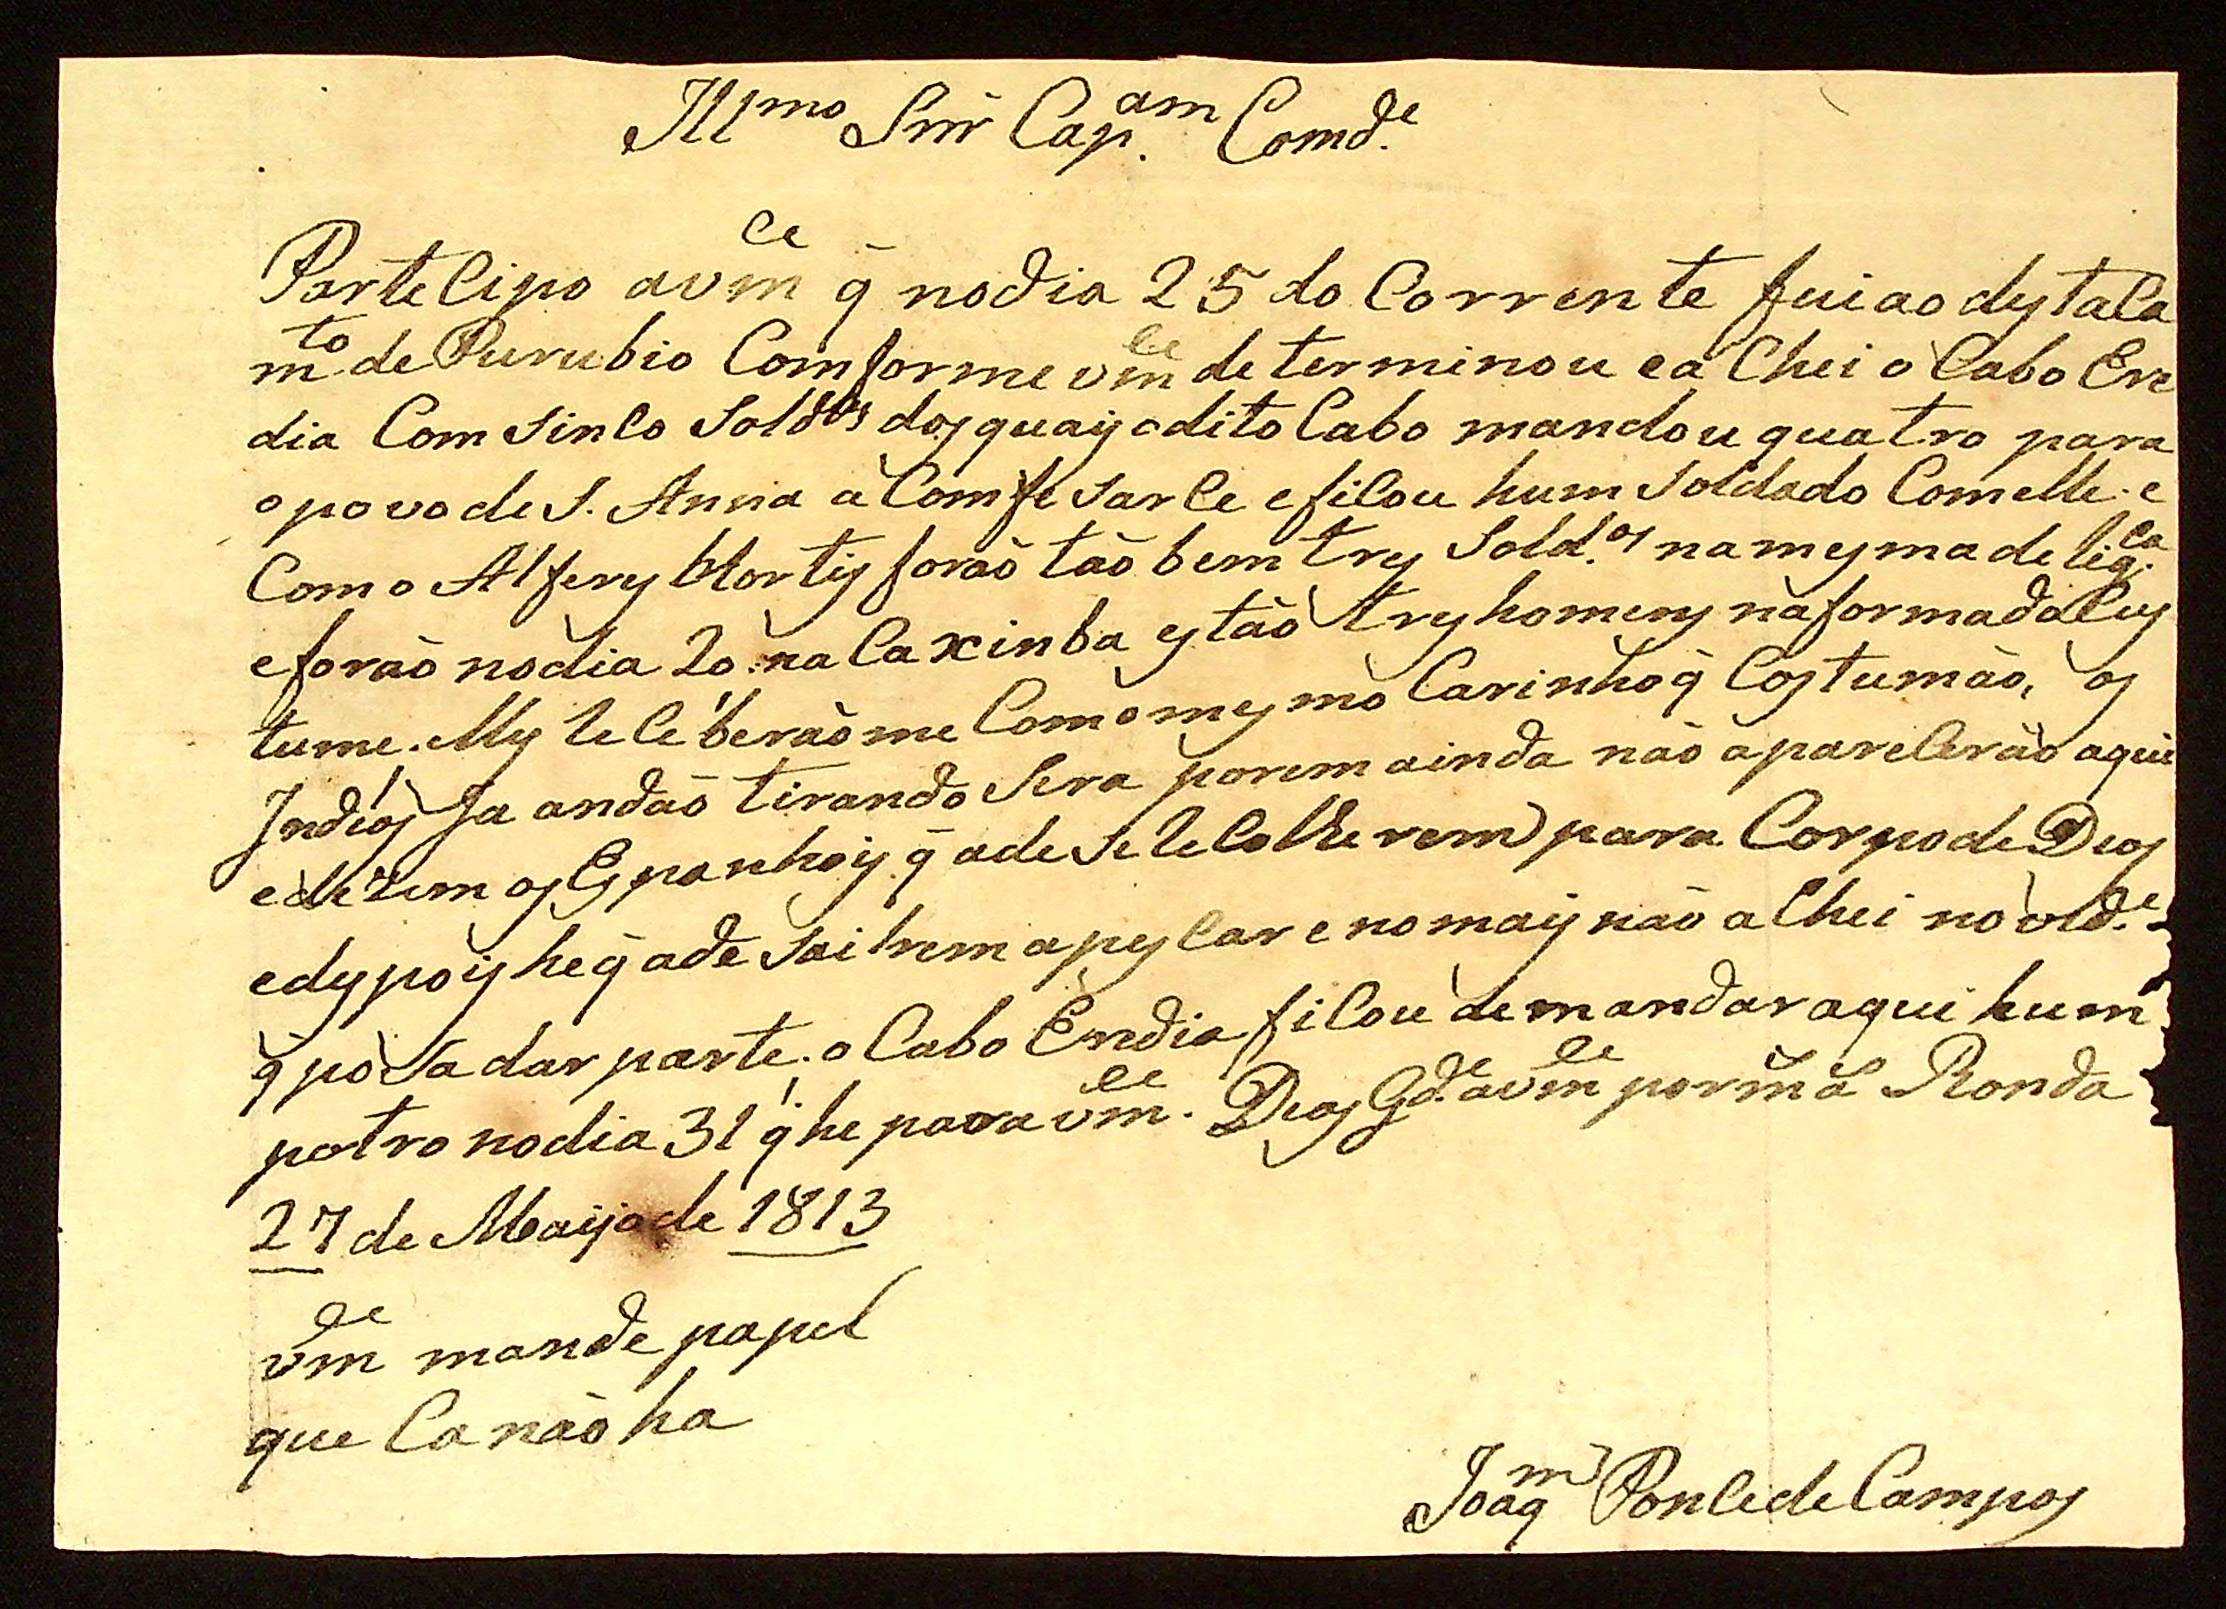 Illmo Snr̃ Cap.am Comd.e
Partecipo a vmce q̃ no dia 25 do Corrente fui ao dystaca
mto de Purubio Comforme vmce determinou e aChei o Cabo Ere
dia Com sinco Soldos dos quays o dito Cabo mandou quatro para
o povo de S. Anna a Comfesarce e ficou hum Soldado Comelle. e
Com o Alferes Hortys forão tão bem trys Sold.os na mesma delig.ca
e forão no dia 20. na Caxinba estão trys homens na forma da Cus
tume. Mys receberãome Com o mesmo Carinho q̃ Costumão, os
Indios Ja andão tirando Sera porem ainda não aparecerão aqui
e dizem os Espanhoys q̃ ade se recolherem para Corpo de Deos
e dyspoys he q̃ ade saihrem a pescar e no mays não aChei novid.e
q̃ posa dar parte. o Cabo Eredia ficou de mandar aqui hum
potro no dia 31 q̃ he para vmce. Deos Gd.e a vmce por m.s a.s Ronda
27 de Maijo de 1813
vmce mande papel
que Ca não ha
Joaqm Ponce de Campos